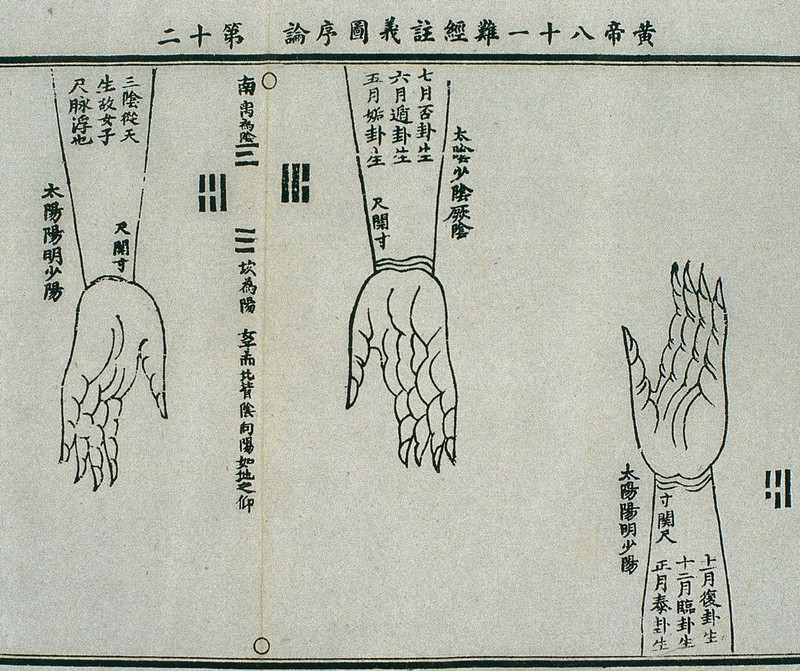 黃帝八十一難經註義圖序論 第十二
十一月復卦生
十二月臨卦生
正月泰卦生
寸關尺
太陽陽明少陽
太陰少陰厥陰
七月否卦生
六月遁卦生
五月姤卦生
尺關寸
南 离為陰
坎為陽 女子面北背陰向陽如地之仰
三陰從天
生故女子
尺脉浮也
尺關寸
太陽陽明少陽